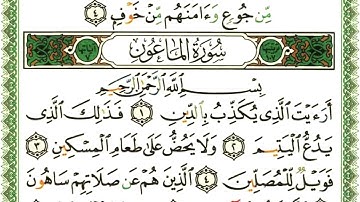 مِّن جُوعٍ وَءَامَنَهُم مِّنْ خَوْفٍ ٤
سُورَةُ المَاعُونِ
بِسْمِ اللَّهِ الرَّحْمَٰنِ الرَّحِيمِ
أَرَءَيْتَ الَّذِي يُكَذِّبُ بِالدِّينِ ١ فَذَٰلِكَ الَّذِي
يَدُعُّ الْيَتِيمَ ٢ وَلَا يَحُضُّ عَلَىٰ طَعَامِ الْمِسْكِينِ ٣
فَوَيْلٌ لِّلْمُصَلِّينَ ٤ الَّذِينَ هُمْ عَن صَلَاتِهِمْ سَاهُونَ